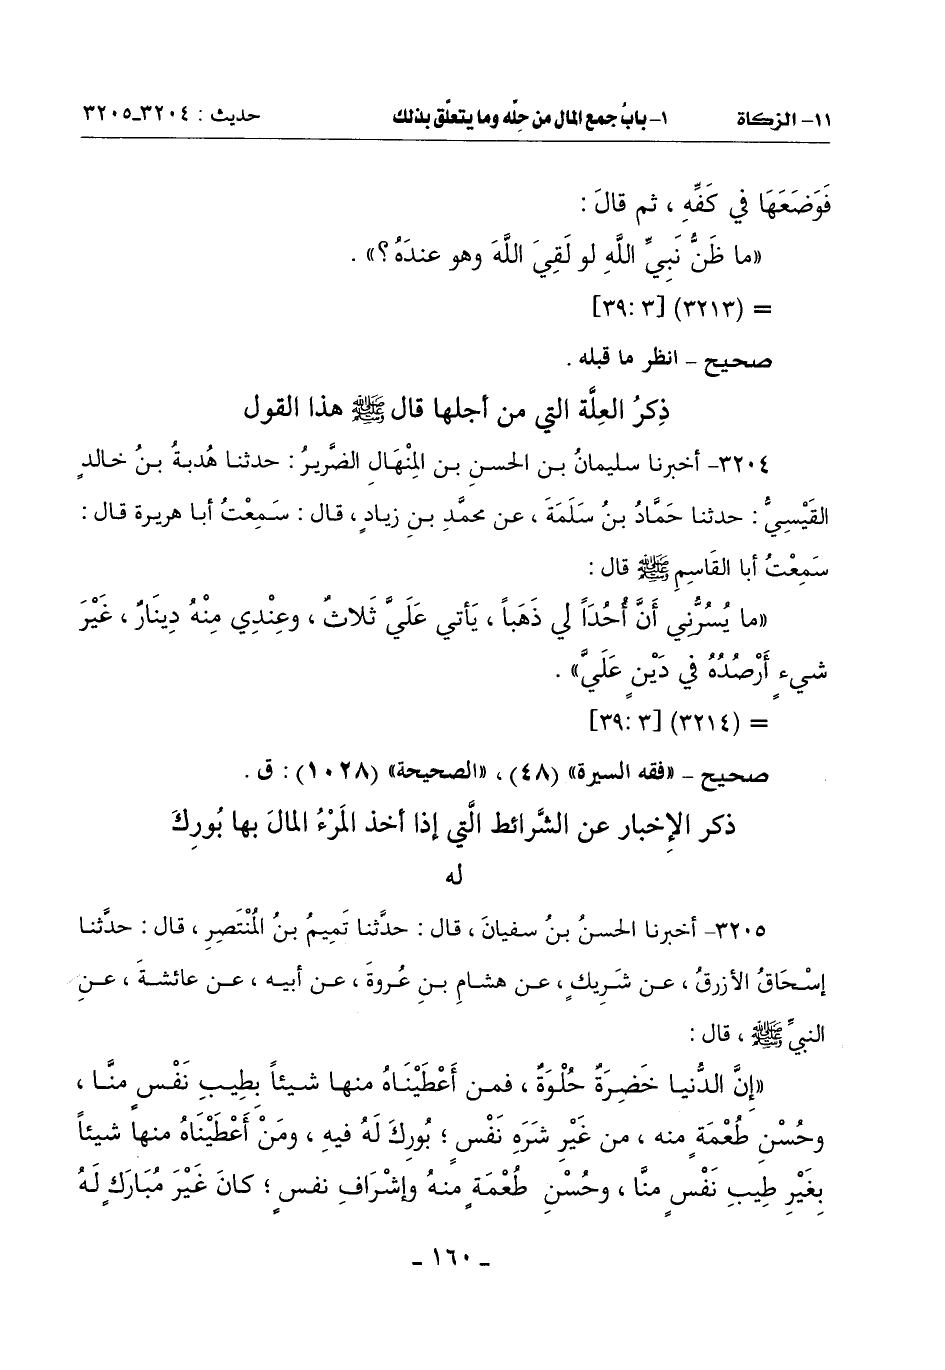 ١١- الزكاة ١- بابُ جمع المال من حِلّه وما يتعلّق بذلك حديث : ٣٢٠٤-٣٢٠٥
فَوَضَعَهَا في كَفِّهِ ، ثم قالَ :
«ما ظَنُّ نَبِيِّ اللَّهِ لو لَقِيَ اللَّهَ وهو عندَهُ؟» .
= (٣٢١٣) [٣ :٣٩]
صحيح - انظر ما قبله .
ذِكرُ العِلَّة التي من أجلها قال ﷺ هذا القول
٣٢٠٤- أخبرنا سليمانُ بـن الحسن بـن المِنْهَال الضَّريرُ : حدثنا هُدبةُ بنُ خالدٍ
القَيْسِيُّ : حدثنا حَمَّادُ بنُ سَلَمَةَ ، عن محمَّدِ بنِ زيادٍ ، قال : سَمِعْتُ أبا هريرة قال :
سَمِعْتُ أبا القَاسِمِ ﷺ قال :
«ما يُسُرُّنِي أَنَّ أُحُدَاً لي ذَهَباً ، يَأتي عَلَيَّ ثَلاثٌ ، وعِنْدِي مِنْهُ دِينَارٌ ، غَيْرَ
شيءٍ أَرْصُدُهُ في دَيْنٍ عَلَيَّ» .
= (٣٢١٤) [٣ :٣٩]
صحيح - «فقه السيرة» (٤٨) ، «الصحيحة» (١٠٢٨) : ق .
ذكر الإخبار عن الشَّرائط الَّتي إذا أخذ المَرْءُ المالَ بها بُورِكَ
له
٣٢٠٥- أخبرنا الحسنُ بنُ سفيانَ ، قال : حدَّثنا تَمِيمُ بنُ المُنْتَصِرِ ، قال : حدَّثنا
إسْحَاقُ الأزرقُ ، عـن شَـرِيكٍ ، عـن هشـامِ بـنِ عُروةَ ، عـن أبيـه ، عـن عائشةَ ، عـنِ
النبيِّ ﷺ ، قال :
«إنَّ الدُّنيا خَضِرَةٌ حُلْوَةٌ ، فمـن أَعْطَيْنَاهُ منهـا شـيئاً بِطِيبِ نَفْسٍ منَّـا ،
وحُسْنِ طُعْمَةٍ منه ، من غَيْرِ شَرَهِ نَفْسٍ ؛ بُورِكَ لَهُ فيهِ ، ومَنْ أَعْطَيْنَاهُ منها شيئاً
بِغَيْرِ طِيبِ نَفْسٍ منَّا ، وحُسْنِ طُعْمَةٍ منهُ وإشْرافِ نفسٍ ؛ كانَ غَيْرَ مُبَارَكٍ لَهُ
- ١٦٠ -